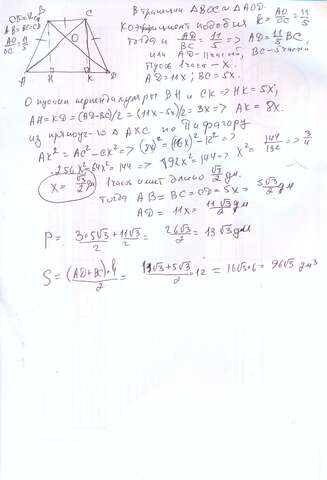 B C
AB = BC = CD
AO/OC = 11/5
O
A H K D
В трапеции △BOC ~ △AOD.
Коэффициент подобия k = AO/OC = 11/5
тогда и AD/BC = 11/5 => AD = 11/5 BC,
или AD - 11 частей, BC - 5 частей
Пусть 1 часть - X.
AD = 11x; BC = 5x.
Опустим перпендикуляры BH и CK => HK = 5x;
AH = KD = (AD-BC)/2 = (11x-5x)/2 = 3x => AK = 8x.
из прямоуг-го △ AKC по Пифагору
AK² = AC² - CK² => (8x)² = (16x)² - 12² =>
256x² - 64x² = 144 => 192x² = 144 => x² = 144/192 => 3/4
x = √3/2 дм 1 часть имеет длину √3/2 дм.
тогда AB = BC = CD = 5x = 5√3/2 дм
AD = 11x = 11√3/2 дм
P = 3+5√3+11√3/2 = 26√3/2 = 13√3 дм
S = (AD+BC)·h/2 = 11√3+5√3/2 · 12 = 16√3·6 = 96√3 дм²